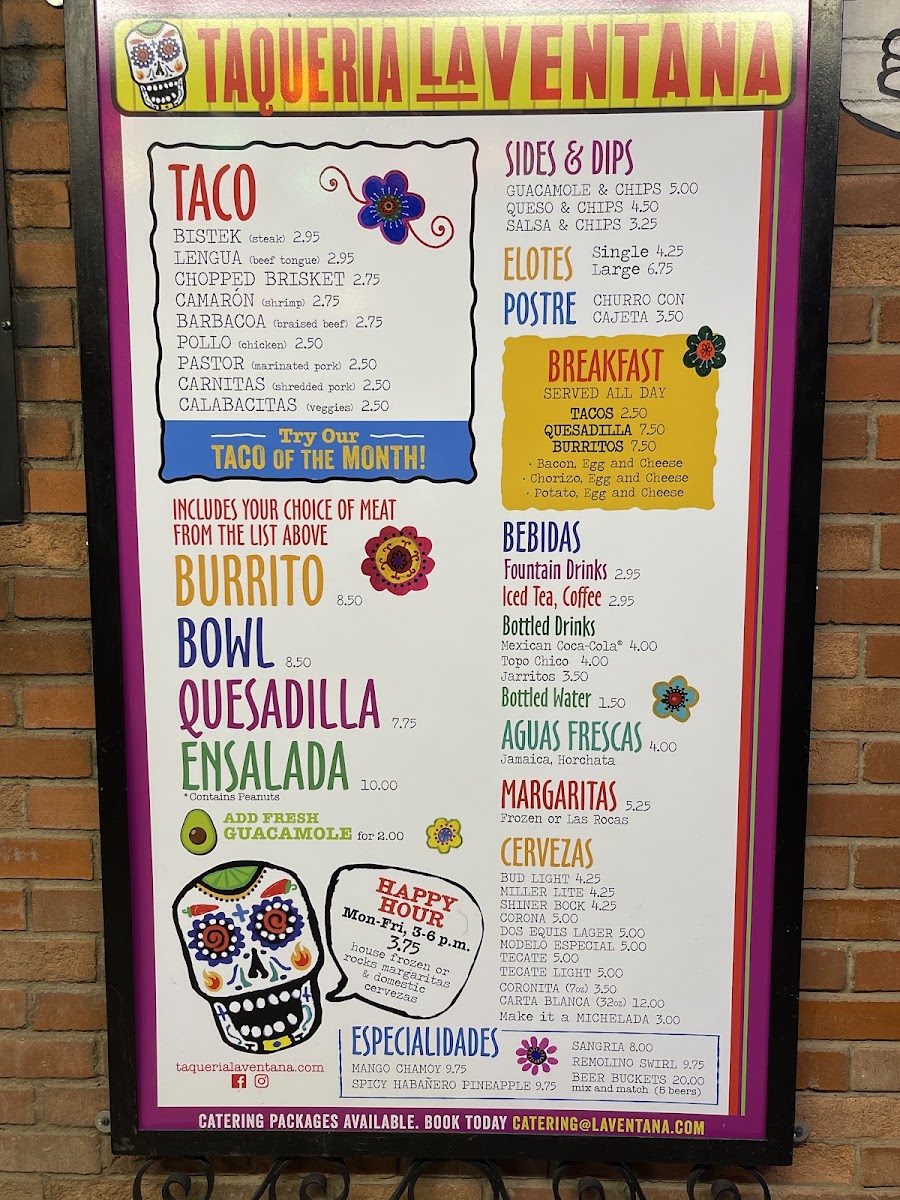 TAQUERIA LA VENTANA
TACO
BISTEK (steak) 2.95
LENGUA (beef tongue) 2.95
CHOPPED BRISKET 2.75
CAMARÓN (shrimp) 2.75
BARBACOA (braised beef) 2.75
POLLO (chicken) 2.50
PASTOR (marinated pork) 2.50
CARNITAS (shredded pork) 2.50
CALABACITAS (veggies) 2.50
Try Our
TACO OF THE MONTH!
INCLUDES YOUR CHOICE OF MEAT
FROM THE LIST ABOVE
BURRITO 8.50
BOWL 8.50
QUESADILLA 7.75
ENSALADA 10.00
*Contains Peanuts
ADD FRESH
GUACAMOLE for 2.00
HAPPY
HOUR
Mon-Fri, 3-6 p.m.
3.75
house frozen or
rocks margaritas
& domestic
cervezas
taquerialaventana.com
SIDES & DIPS
GUACAMOLE & CHIPS 5.00
QUESO & CHIPS 4.50
SALSA & CHIPS 3.25
ELOTES Single 4.25
Large 6.75
POSTRE CHURRO CON
CAJETA 3.50
BREAKFAST
SERVED ALL DAY
TACOS 2.50
QUESADILLA 7.50
BURRITOS 7.50
· Bacon, Egg and Cheese
· Chorizo, Egg and Cheese
· Potato, Egg and Cheese
BEBIDAS
Fountain Drinks 2.95
Iced Tea, Coffee 2.95
Bottled Drinks
Mexican Coca-Cola® 4.00
Topo Chico 4.00
Jarritos 3.50
Bottled Water 1.50
AGUAS FRESCAS 4.00
Jamaica, Horchata
MARGARITAS 5.25
Frozen or Las Rocas
CERVEZAS
BUD LIGHT 4.25
MILLER LITE 4.25
SHINER BOCK 4.25
CORONA 5.00
DOS EQUIS LAGER 5.00
MODELO ESPECIAL 5.00
TECATE 5.00
TECATE LIGHT 5.00
CORONITA (7oz) 3.50
CARTA BLANCA (32oz) 12.00
Make it a MICHELADA 3.00
ESPECIALIDADES
MANGO CHAMOY 9.75
SPICY HABAÑERO PINEAPPLE 9.75
SANGRIA 8.00
REMOLINO SWIRL 9.75
BEER BUCKETS 20.00
mix and match (5 beers)
CATERING PACKAGES AVAILABLE. BOOK TODAY CATERING@LAVENTANA.COM